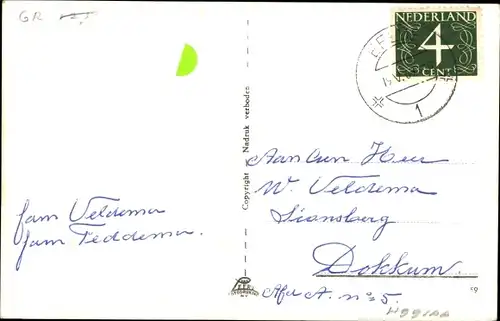 GR
NEDERLAND
4
CENT
1
Copyright - Nadruk verboden
Aan den Heer
W. Veldema
Sionsberg
Dokkum.
Afd A. no 5.
fam Veldema
fam Feddema.